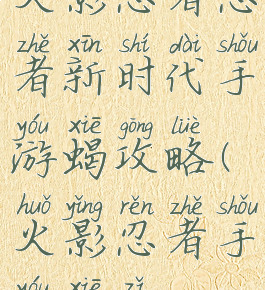 火影忍者忍
zhě xīn shí dài shǒu
者新时代手
yóu xiē gōng lüè
游蝎攻略(
huǒ yǐng rěn zhě shǒu
火影忍者手
yóu xiē zǐ